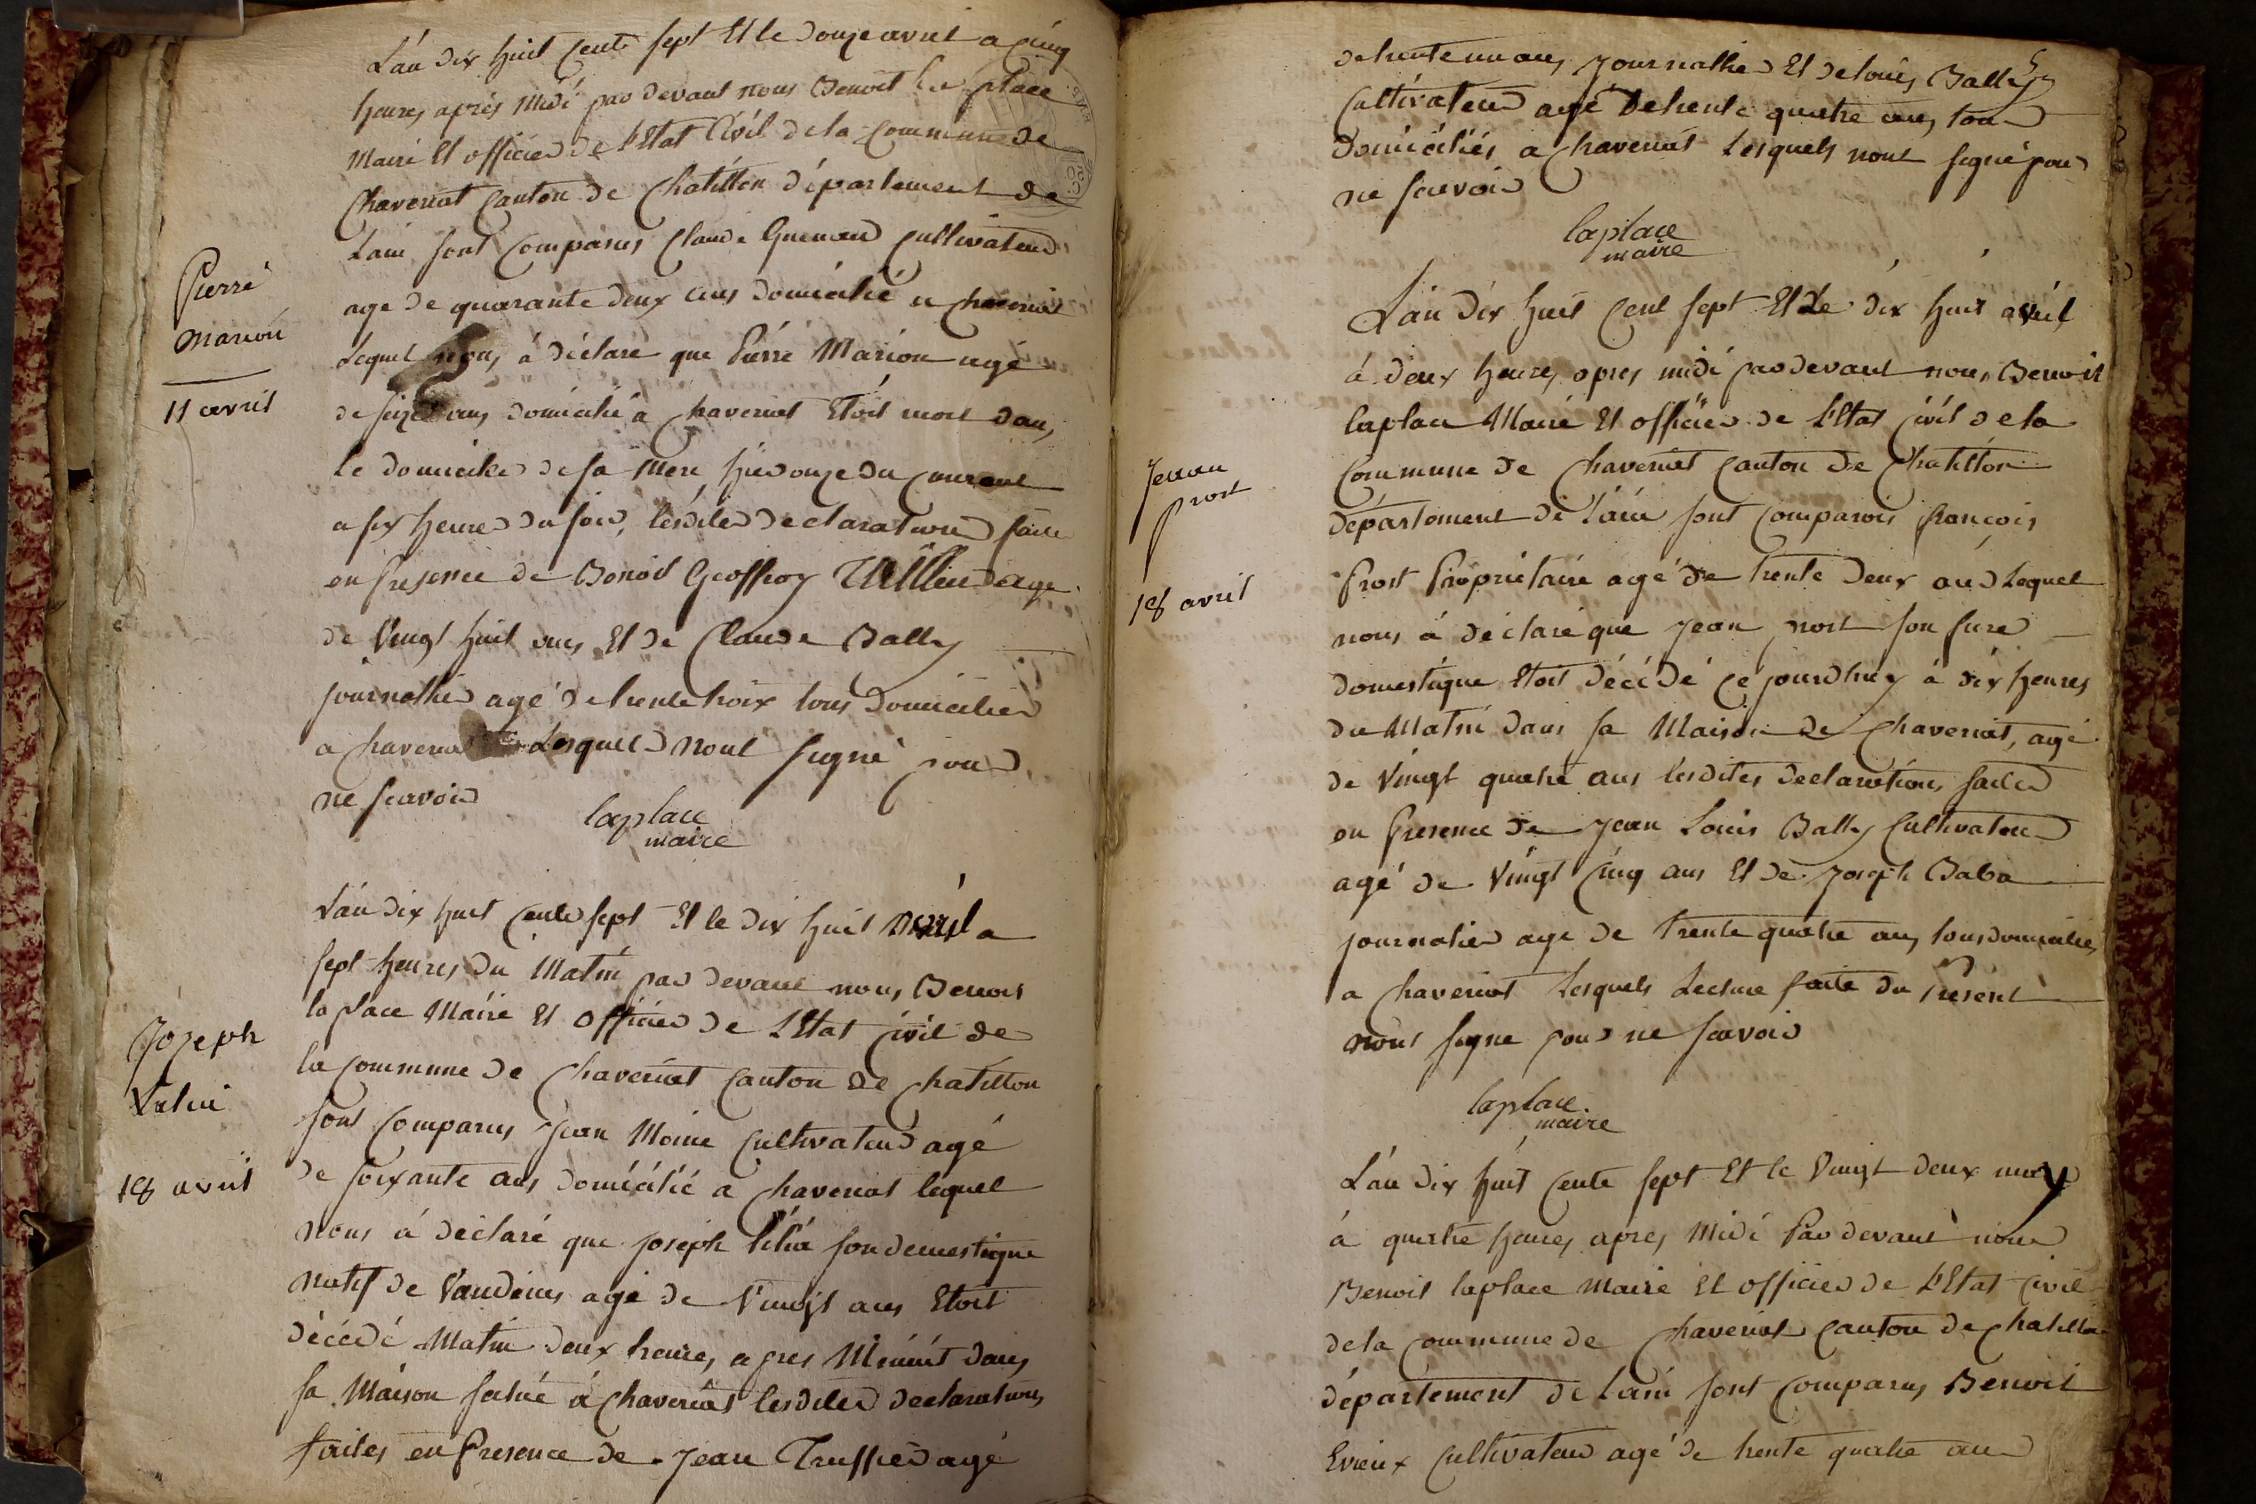 L'an dix huit cents sept Et le douze avril a cinq
heures après Midi par devant nous Benoit La place
Maire Et officier de L'Etat Civil de la Commune de
Chaveriat Canton de Chatillon département de
Lain sont Comparus Claude cultivateur
Pierre
Marion
11 avril
age de quarante deux ans domicilié a Chaveriat
Lequel nous à déclaré que Pierre Marion agé
de seize ans domicilié a Chaveriat Etoit mort dans
Le domicile de sa Mere hier onze du courant
a six heures du soir, lesdites declarations faites
en presence de Benoit Geoffroy agé
de Vingt huit ans Et de Claude Bally
journallier agé de trente troix tous domiciliés
a Chaveriat Lesquels nont signé pour
ne scavoir
laplace
maire
L'an dix huit cents sept Et le dix huit avril a
sept heures du Matin par devant nous Benoit
la place Maire Et officier de L'Etat Civil de
Joseph
18 avril
la commune de Chaveriat Canton de Chatillon
sont comparus Jean Moine cultivateur agé
de soixante ans domicilié a Chaveriat lequel
nous à déclaré que joseph son domestique
natif de Vandeins agé de Vingt ans Etoit
décédé Matin deux heures apres Minuit dans
sa Maison située à Chaveriat lesdites declarations
faites en presence de Jean Truffier agé
de trente un ans journallier Et de louis Bally
Cultivateur agé de trente quatre ans tous
domiciliés a Chaveriat Lesquels nont signé pour
ne scavoir
laplace
maire
Jean
prost
18 avril
L'an dix huit cent sept Et Le dix huit avril
à deux heures apres midi par devant nous Benoit
laplace Maire Et officier de L'Etat civil de la
Commune de Chaveriat Canton de Chatillon
département de L'ain sont comparois françois
Prost Propriétaire agé de trente deux ans Lequel
nous à déclaré que jean prost son frere
domestique Etoit décédé ce jourdhuy à dix heures
du Matin dans sa Maison de Chaveriat, agé
de Vingt quatre ans lesdites declarations faites
en Presence de jean Louis Bally Cultivateur
agé de Vingt cinq ans Et de joseph Baba
journalier age de trente quatre ans tous domiciliés
a Chaveriat Lesquels Lecture faite du Present
nont signe pour ne scavoir
laplace
maire
L'an dix huit cents sept Et le Vingt deux may
à quatre heures apres Midi Par devant nous
Benoit laplace Maire Et officier de L'Etat civil
de la commune de Chaveriat Canton de Chatillon
département de Lain sont comparus Benoit
Evieux Cultivateur agé de trente quatre ans